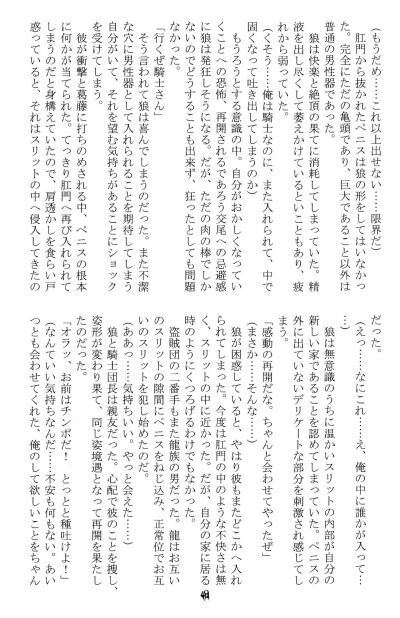 (もうだめ……これ以上出せない……限界だ)
肛門から抜かれたペニスは狼の形をしてはいなかっ
た。完全にただの亀頭であり、巨大であること以外は
普通の男性器であった。
狼は快楽と絶頂の果てに消耗してしまっていた。精
液を出し尽くして萎えかけているということもあり、疲
れから弱っていた。
(くそう……俺は騎士なのに、また入れられて、中で
固くなって吐き出してしまうのか)
もうろうとする意識の中。自分がおかしくなってい
くことへの恐怖、再開されるであろう交尾への忌避感
に狼は発狂しそうになる。だが、ただの肉の棒でしか
ないのでどうすることも出来ず、狂ったとしても問題
なかった。
「行くぜ騎士さん」
そう言われて狼は喜んでしまうのだった。また不潔
な穴に男性器として入れられることを期待してしまう
自分がいて、それを望む気持ちがあることにショック
を受けてしまう。
彼が衝撃と葛藤に打ちのめされる中、ペニスの根本
に何かが当てられた。てっきり肛門へ再び入れられて
しまうのだと身構えていたので、肩透かしを食らい戸
惑っていると、それはスリットの中へ侵入してきたの
だった。
(えっ……なにこれ……え　俺の中に誰かが入って…
…)
狼は無意識のうちに温かいスリットの内部が自分の
新しい家であることを認めてしまっていた。ペニスの
外に出ていないデリケートな部分を刺激され感じてし
まう。
「感動の再開だな。ちゃんと会わせてやったぜ」
(まさか……そんな……)
狼が困惑していると、やはり彼もまたどこかへ入れ
られてしまった。今度は肛門の中のような不快さは無
く、スリットの中に近かった。だが、自分の家に居る
時のようにくつろげるわけでもなかった。
盗賊団の二番手もまた龍族の男だった。龍はお互い
のスリットの隙間にペニスをねじ込み、正常位でお互
いのスリットを犯し始めたのだ。
(ああっ……気持ちいい。やっと会えた……)
狼と騎士団長は親友だった。心配で彼のことを捜し、
姿形が変わり果て、同じ姿境遇となって再開を果たし
たのだった。
「オラッ、お前はチンポだ！　とっとと種吐けよ！」
(なんていい気持ちなんだ……不安も何もない。あい
つとも会わせてくれた、俺のして欲しいことをちゃん